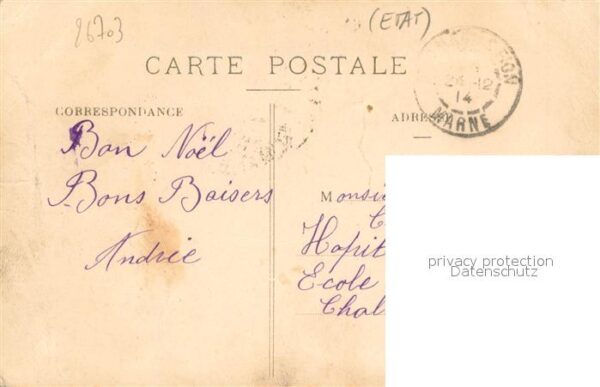 26703
(ETAT)
CARTE POSTALE
24 12
14
MARNE
CORRESPONDANCE
ADRES
Bon Noël
Bons Baisers
Andrée
Monsi
Hopit
Ecole
Chal
privacy protection
Datenschutz